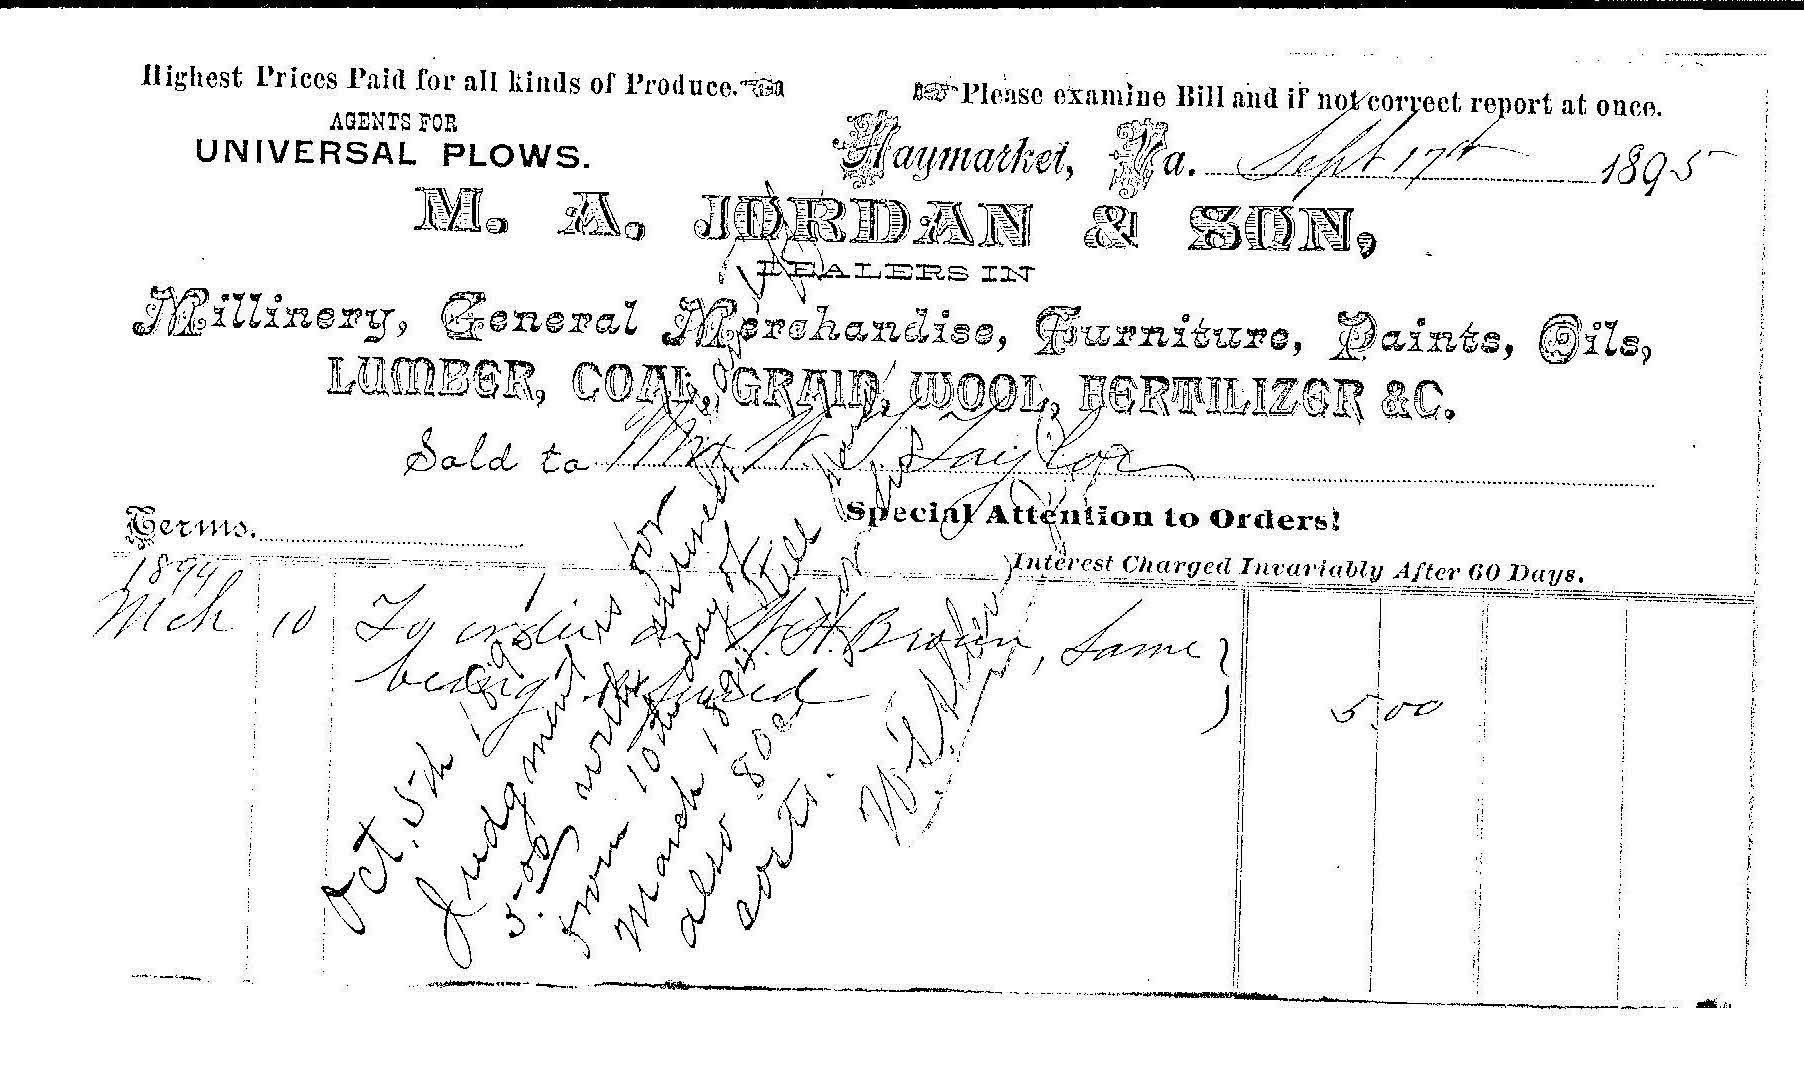 Highest Prices Paid for all kinds of Produce.
Please examine Bill and if not correct report at once.
AGENTS FOR
UNIVERSAL PLOWS.
Haymarket, Va. Sept 17th 1895
M. A. JORDAN & SON,
DEALERS IN
Millinery, General Merchandise, Furniture, Paints, Oils,
LUMBER, COAL, GRAIN, WOOL, FERTILIZER &C.
Sold to W. S. Taylor
Terms.
Special Attention to Orders!
Interest Charged Invariably After 60 Days.
1894
Mch 10 To order W. H. Brown, Same
being 5.00
Oct. 5th 1895
Judgment is for
5.00 with interest
from 10th day of
March 1894 till
also 80c for
costs.